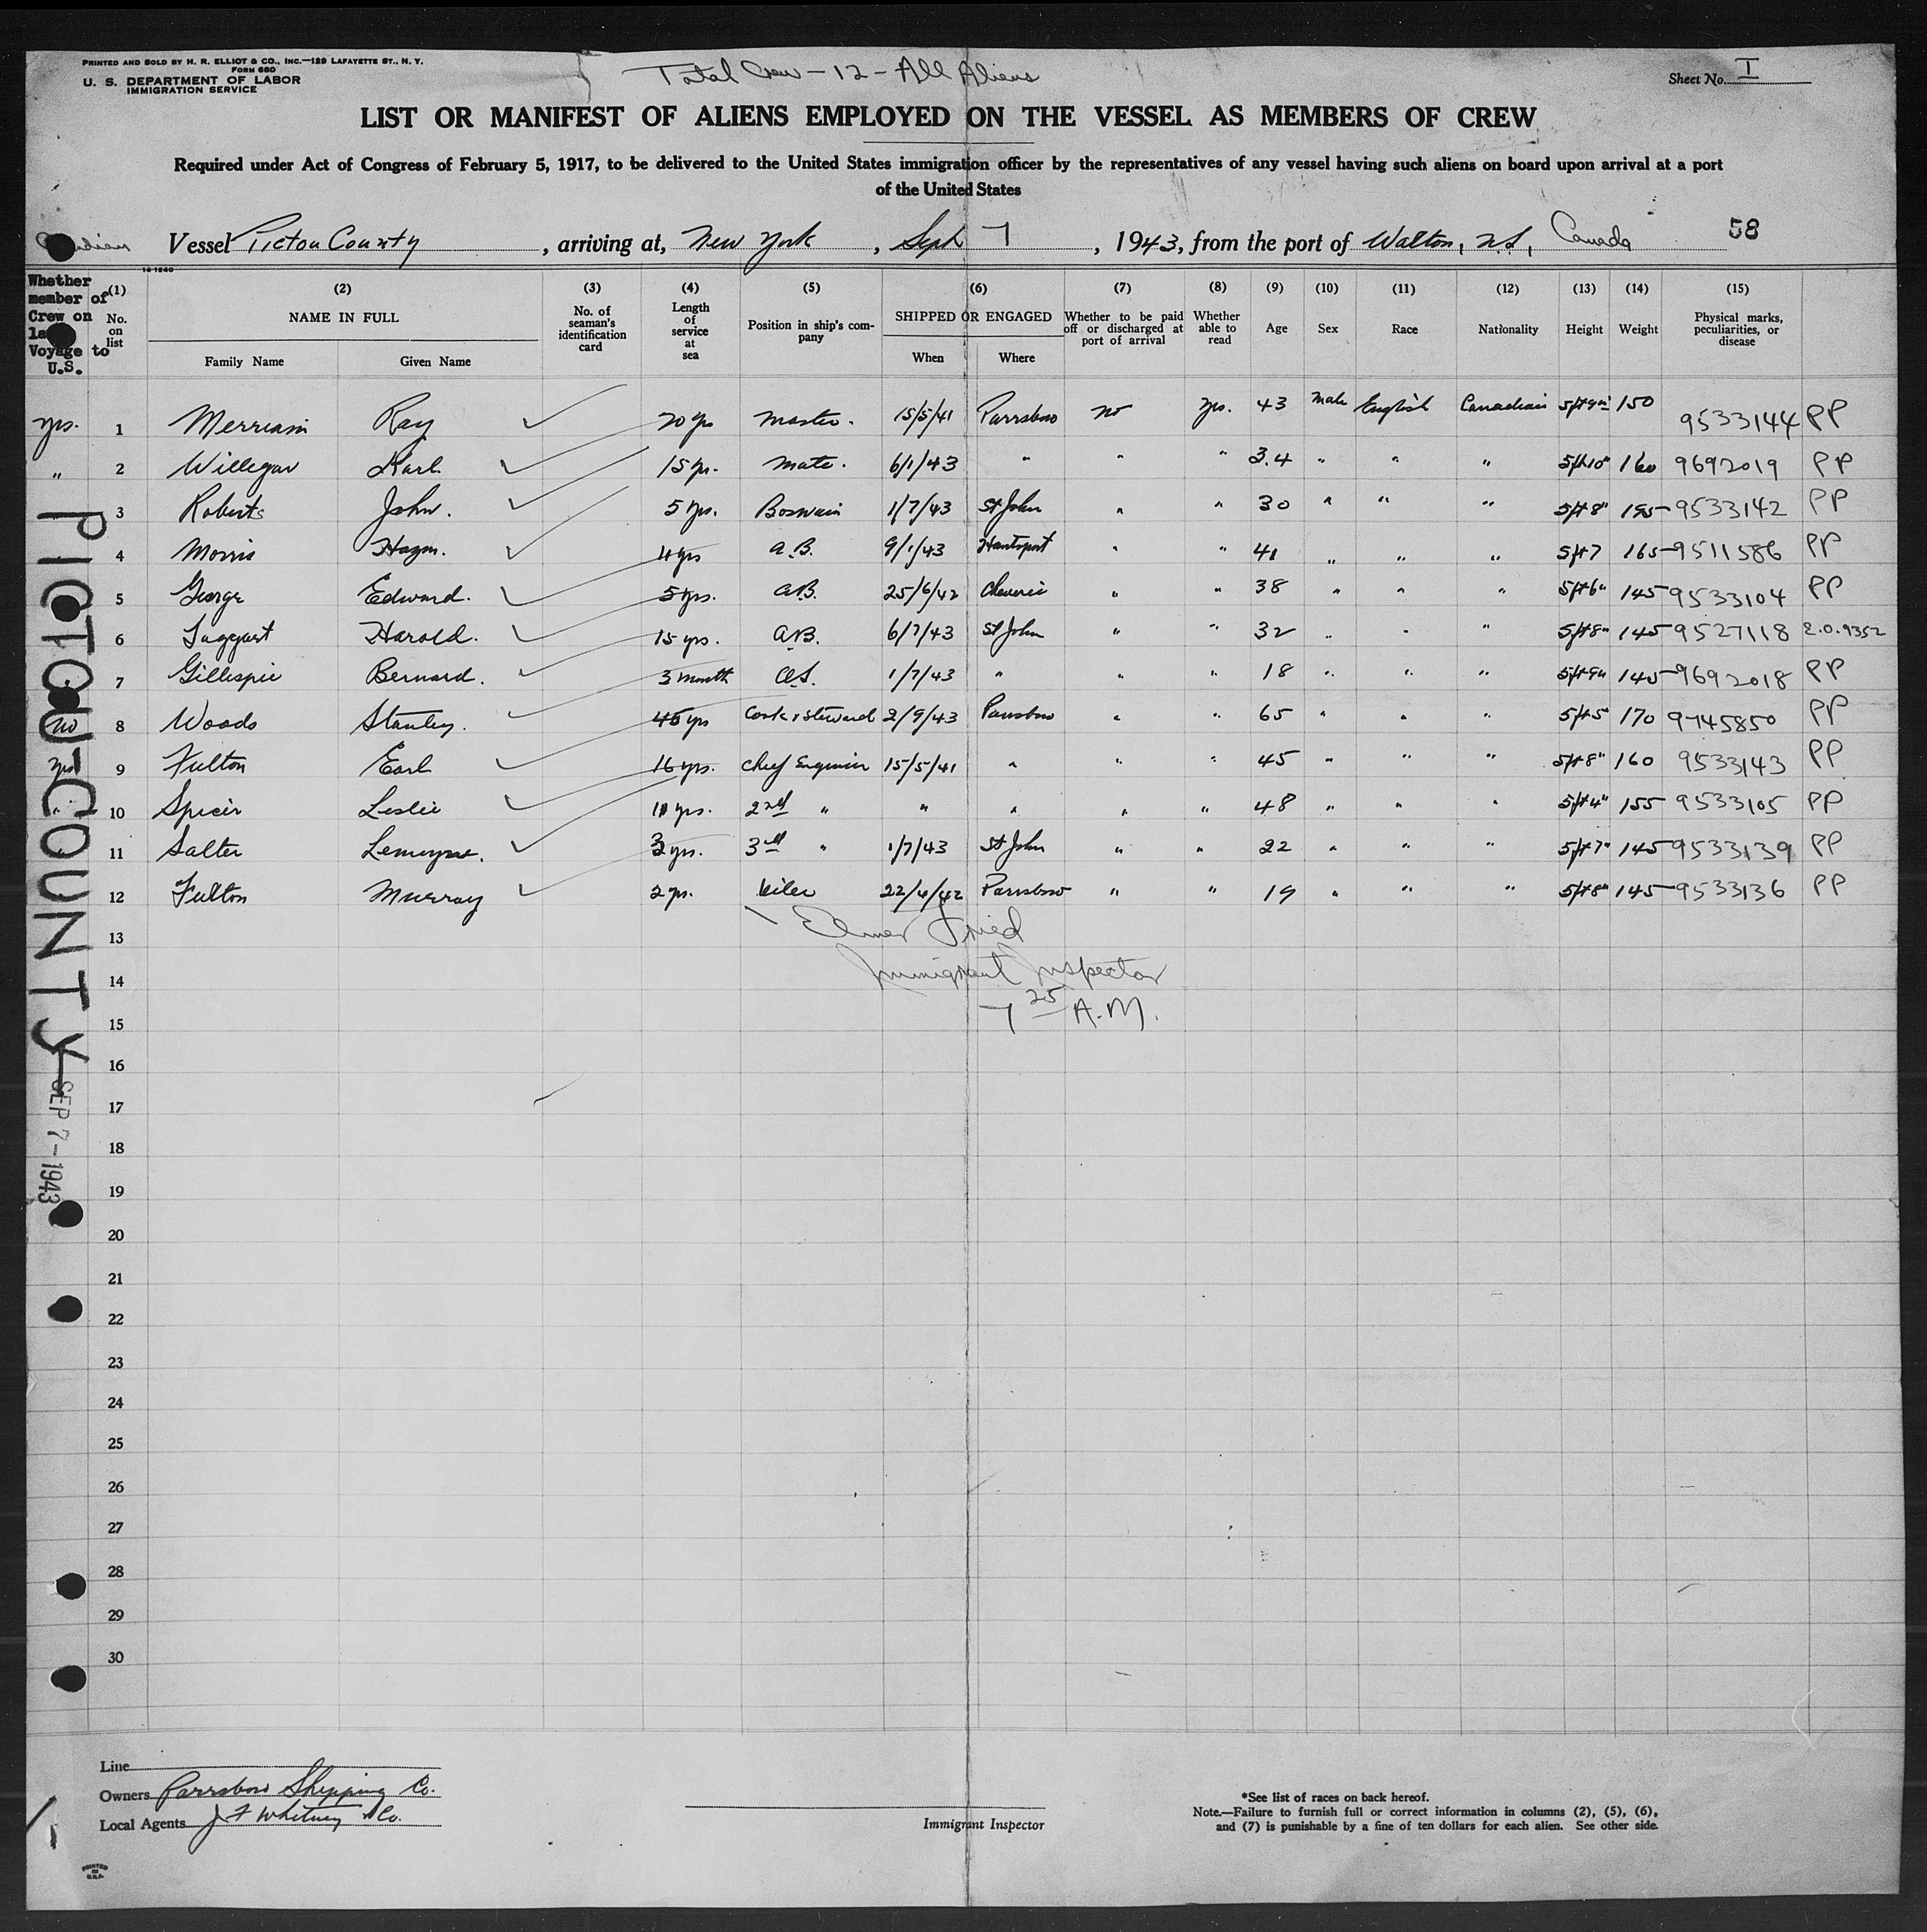 PRINTED AND SOLD BY H. R. ELLIOT & CO., INC.—129 LAFAYETTE ST., N. Y.
FORM 680
U. S. DEPARTMENT OF LABOR
IMMIGRATION SERVICE
Total Crew - 12 - All Aliens
Sheet No. I
LIST OR MANIFEST OF ALIENS EMPLOYED ON THE VESSEL AS MEMBERS OF CREW
Required under Act of Congress of February 5, 1917, to be delivered to the United States immigration officer by the representatives of any vessel having such aliens on board upon arrival at a port
of the United States
Vessel Pictou County, arriving at, New York, Sept 7, 1943, from the port of Walton, N.S., Canada 58
Whether member of Crew on last Voyage to U.S.
(1) No. on list
(2) NAME IN FULL Family Name Given Name
(3) No. of seaman's identification card
(4) Length of service at sea
(5) Position in ship's company
(6) SHIPPED OR ENGAGED When Where
(7) Whether to be paid off or discharged at port of arrival
(8) Whether able to read
(9) Age
(10) Sex
(11) Race
(12) Nationality
(13) Height
(14) Weight
(15) Physical marks, peculiarities, or disease
yes. 1 Merriam Ray 20 yrs Master. 15/5/41 Parrsboro no yes. 43 male English Canadian 5ft9in 150 9533144 PP
" 2 Willegar Karl 15 yr. Mate. 6/1/43 " " " 34 " " " 5ft10" 160 9692019 PP
3 Roberts John. 5 yrs. Boswain 1/7/43 St John " " 30 " " " 5ft8" 195 9533142 PP
4 Morris 11 yrs A.B. 9/1/43 Hantsport " " 41 " " " 5ft7 165 9511586 PP
5 George Edward. 5 yrs. A.B. 25/6/42 Cheverie " " 38 " " " 5ft6" 145 9533104 PP
6 Taggart Harold. 15 yrs. A.B. 6/7/43 St John " " 32 " " " 5ft8" 145 9527118 E.O. 9352
7 Gillespie Bernard. 3 month O.S. 1/7/43 " " " 18 " " " 5ft9" 145 9692018 PP
no 8 Woods Stanley. 45 yrs Cook & Steward 2/9/43 Parrsboro " " 65 " " " 5ft5" 170 9745850 PP
yes 9 Fulton Earl 16 yrs. Chief Engineer 15/5/41 " " " 45 " " " 5ft8" 160 9533143 PP
" 10 Spicer Leslie 11 yrs. 2nd " " " " " 48 " " " 5ft4" 155 9533105 PP
11 Salter 3 yrs. 3rd " 1/7/43 St John " " 22 " " " 5ft7" 145 9533139 PP
12 Fulton Murray 2 yrs. Oiler 22/6/42 Parrsboro " " 19 " " " 5ft8" 145 9533136 PP
13
Elmer Fried
14
Immigrant Inspector
15
7 25 A.M.
16
17
18
19
20
21
22
23
24
25
26
27
28
29
30
PICTOU-COUNTY
SEP 7 - 1943
Line
Owners Parrsboro Shipping Co.
Local Agents J F Whitney & Co.
Immigrant Inspector
*See list of races on back hereof.
Note.—Failure to furnish full or correct information in columns (2), (5), (6),
and (7) is punishable by a fine of ten dollars for each alien. See other side.
PRINTED IN U.S.A.